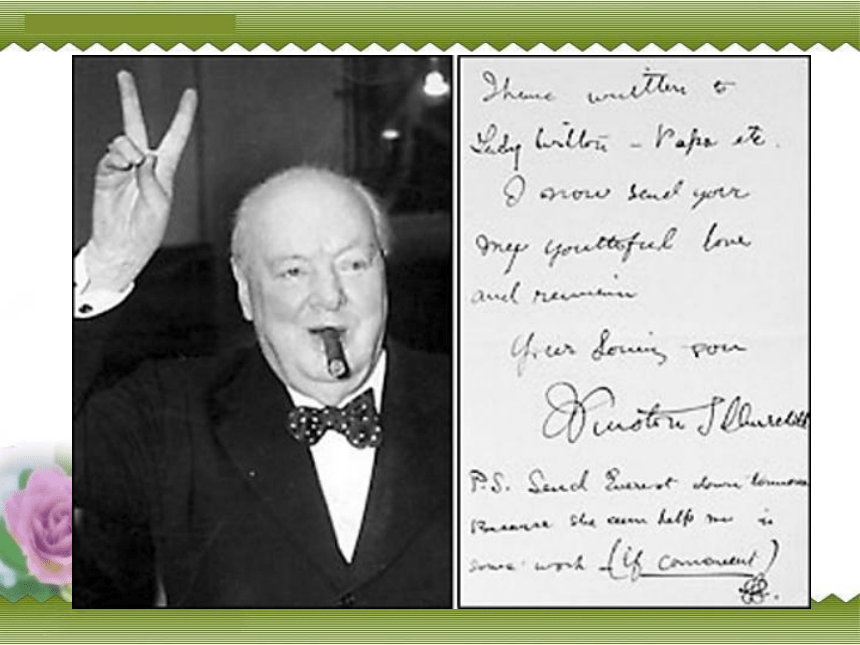 I have written to
Lady Wilton – Papa etc.
I now send you
my youthful love
and remain
Your loving son
Winston S Churchill
P.S. Send Everest down tomorrow
Because she can help me in
some work (if convenient)